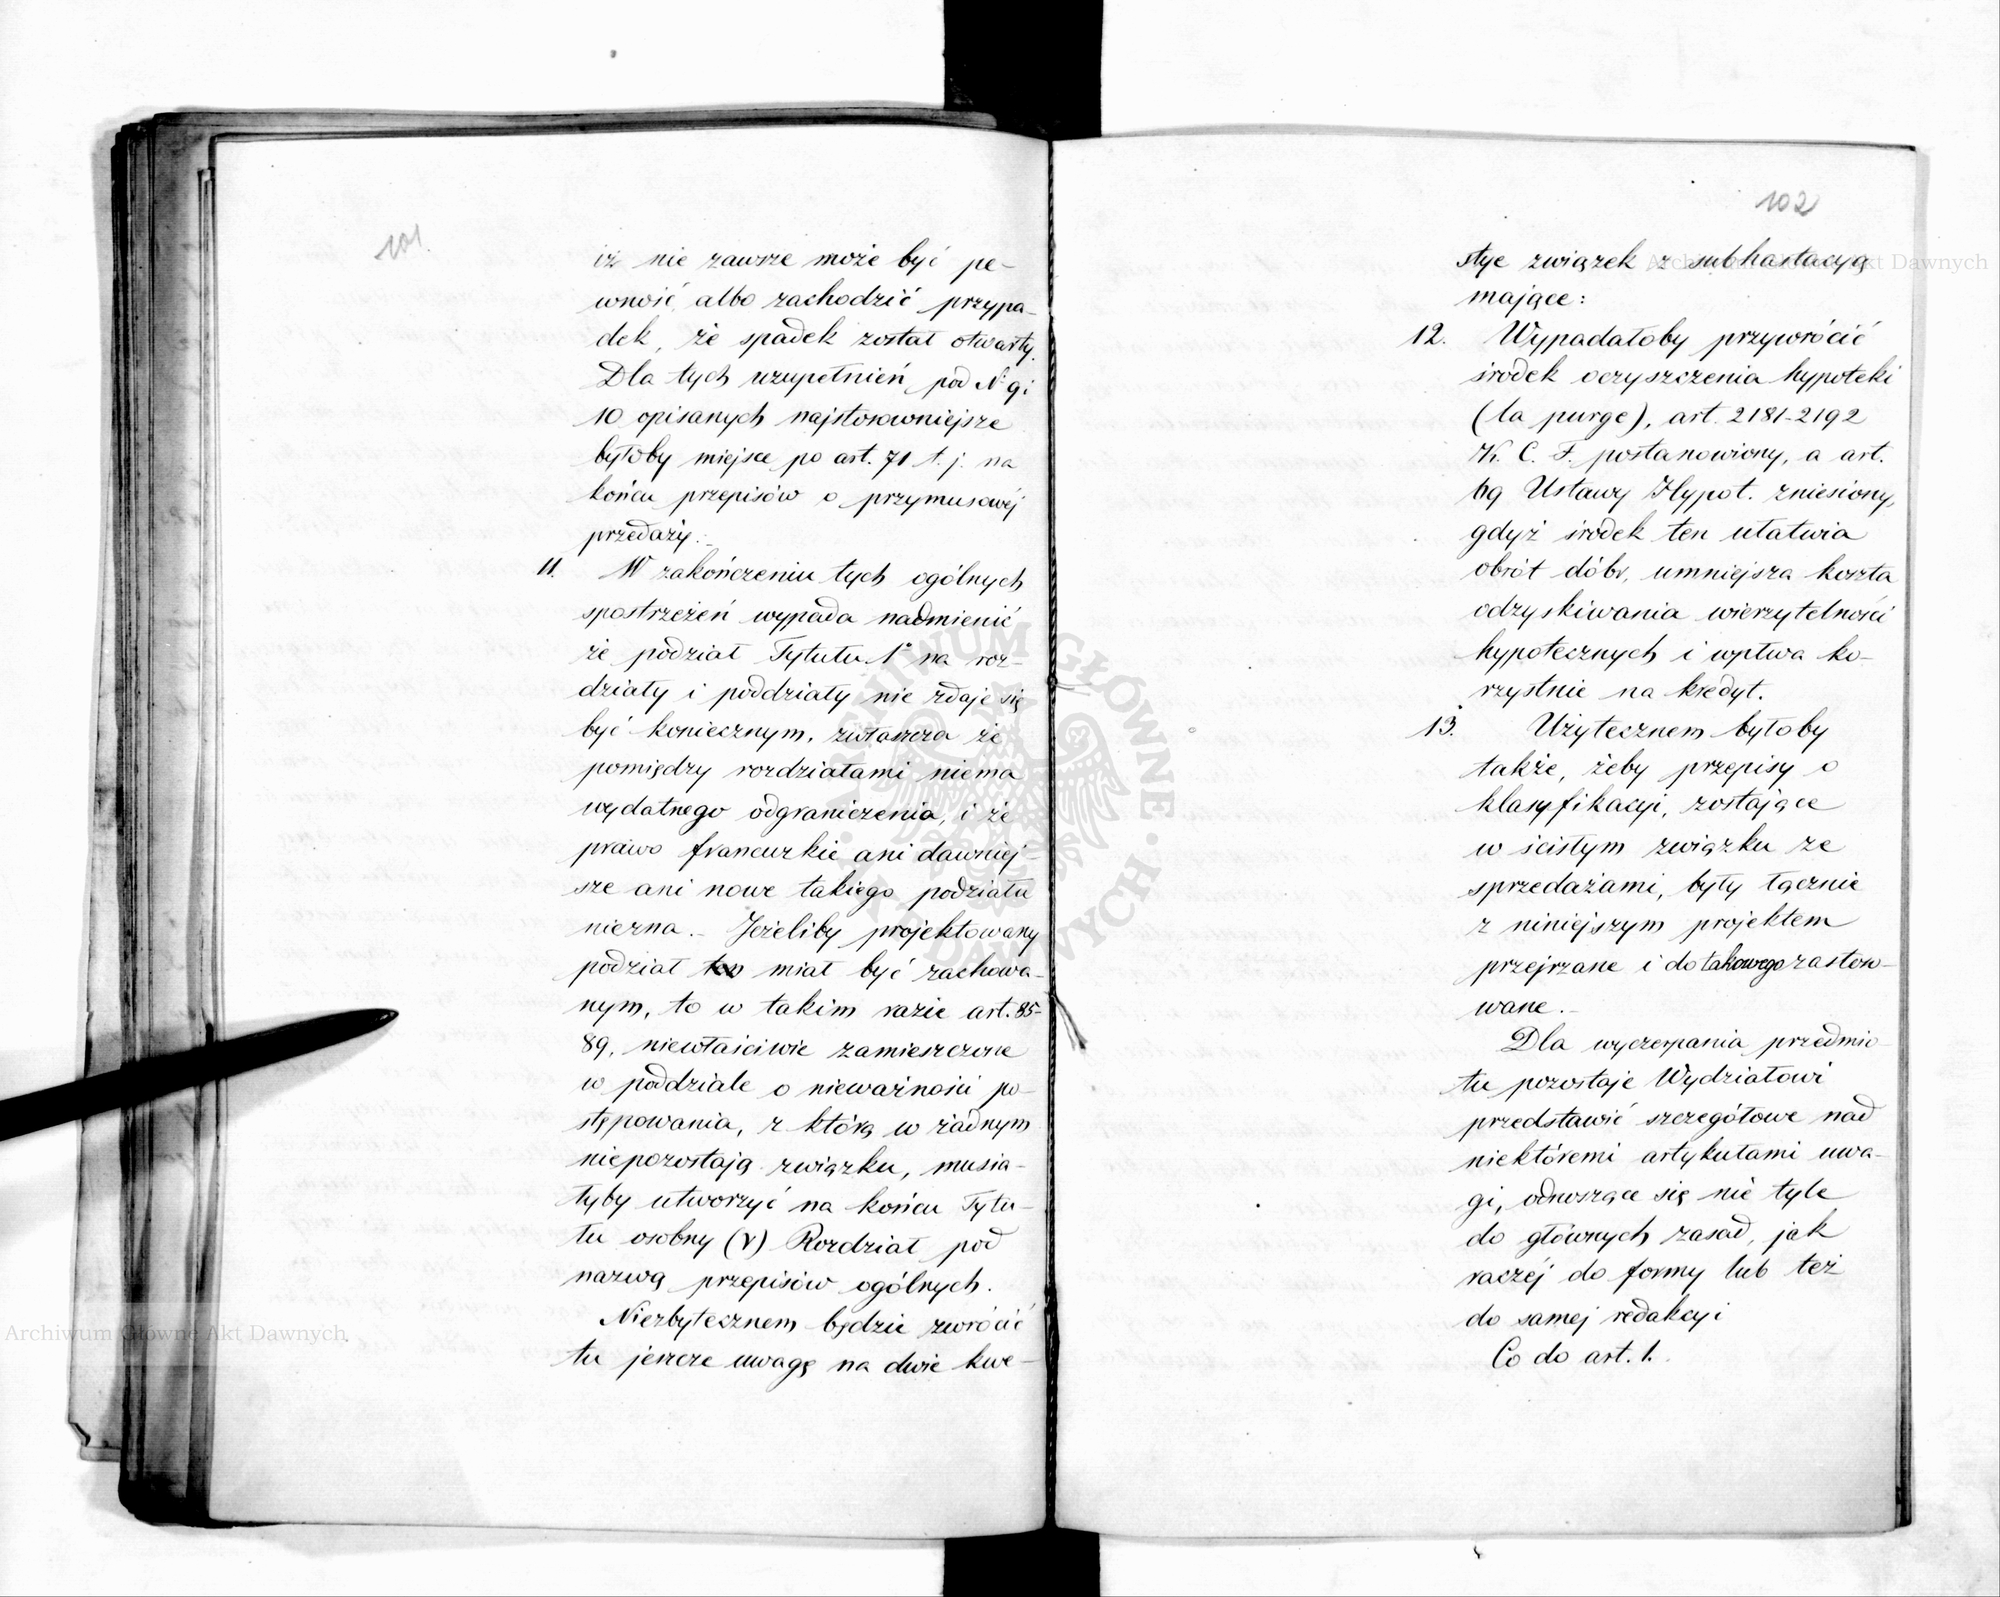 101.
iż nie zawsze może być pe-
wność, albo zachodzić przypa-
dek, że spadek został otwarty.
Dla tych uzupełnień pod N° 9 i
10 opisanych najstosowniejsze
byłoby miejsce po art. 71 t. j. na
końcu przepisów o przymusowéj
przedaży.-
11. W zakończeniu tych ogólnych
spostrzeżeń wypada nadmienić
że podział Tytułu 1° na roz-
działy i poddziały nie zdaje się
być koniecznym, zwłaszcza że
pomiędzy rozdziałami niema
wydatnego odgraniczenia, i że
prawo francuzkie ani dawniej-
sze ani nowe takiego podziału
niezna.- Jeżeliby projektowany
podział ten miał być zachowa-
nym, to w takim razie art. 85-
89, niewłaściwie zamieszczone
w poddziale o nieważności po-
stępowania, z którą w żadnym
niepozostają związku, musia-
łyby utworzyć na końcu Tytu-
łu osobny (V) Rozdział pod
nazwą przepisów ogólnych.
Niezbytecznem będzie zwrócić
tu jeszcze uwagę na dwie kwe-
102
stye związek z subhastacyą
mające:
12. Wypadałoby przywrócić
środek oczyszczenia hypoteki
(la purge), art. 2181-2192
K. C. F. postanowiony, a art.
69 Ustawy Hypot. zniesiony,
gdyż środek ten ułatwia
obrót dóbr, umniejsza koszta
odzyskiwania wierzytelności
hypotecznych i wpływa ko-
rzystnie na kredyt.
13. Użytecznem byłoby
także, żeby przepisy o
klasyfikacyi, zostające
w ścisłym związku ze
sprzedażami, były łącznie
z niniejszym projektem
przejrzane i do takowego zastoso-
wane.-
Dla wyczerpania przedmio-
tu pozostaje Wydziałowi
przedstawić szczegółowe nad
niektóremi artykułami uwa-
gi, odnoszące się nie tyle
do głównych zasad, jak
raczéj do formy lub też
do samej redakcyi
Co do art. 1.
Archiwum Główne Akt Dawnych
Archiwum Główne Akt Dawnych
ARCHIWUM GŁÓWNE AKT DAWNYCH